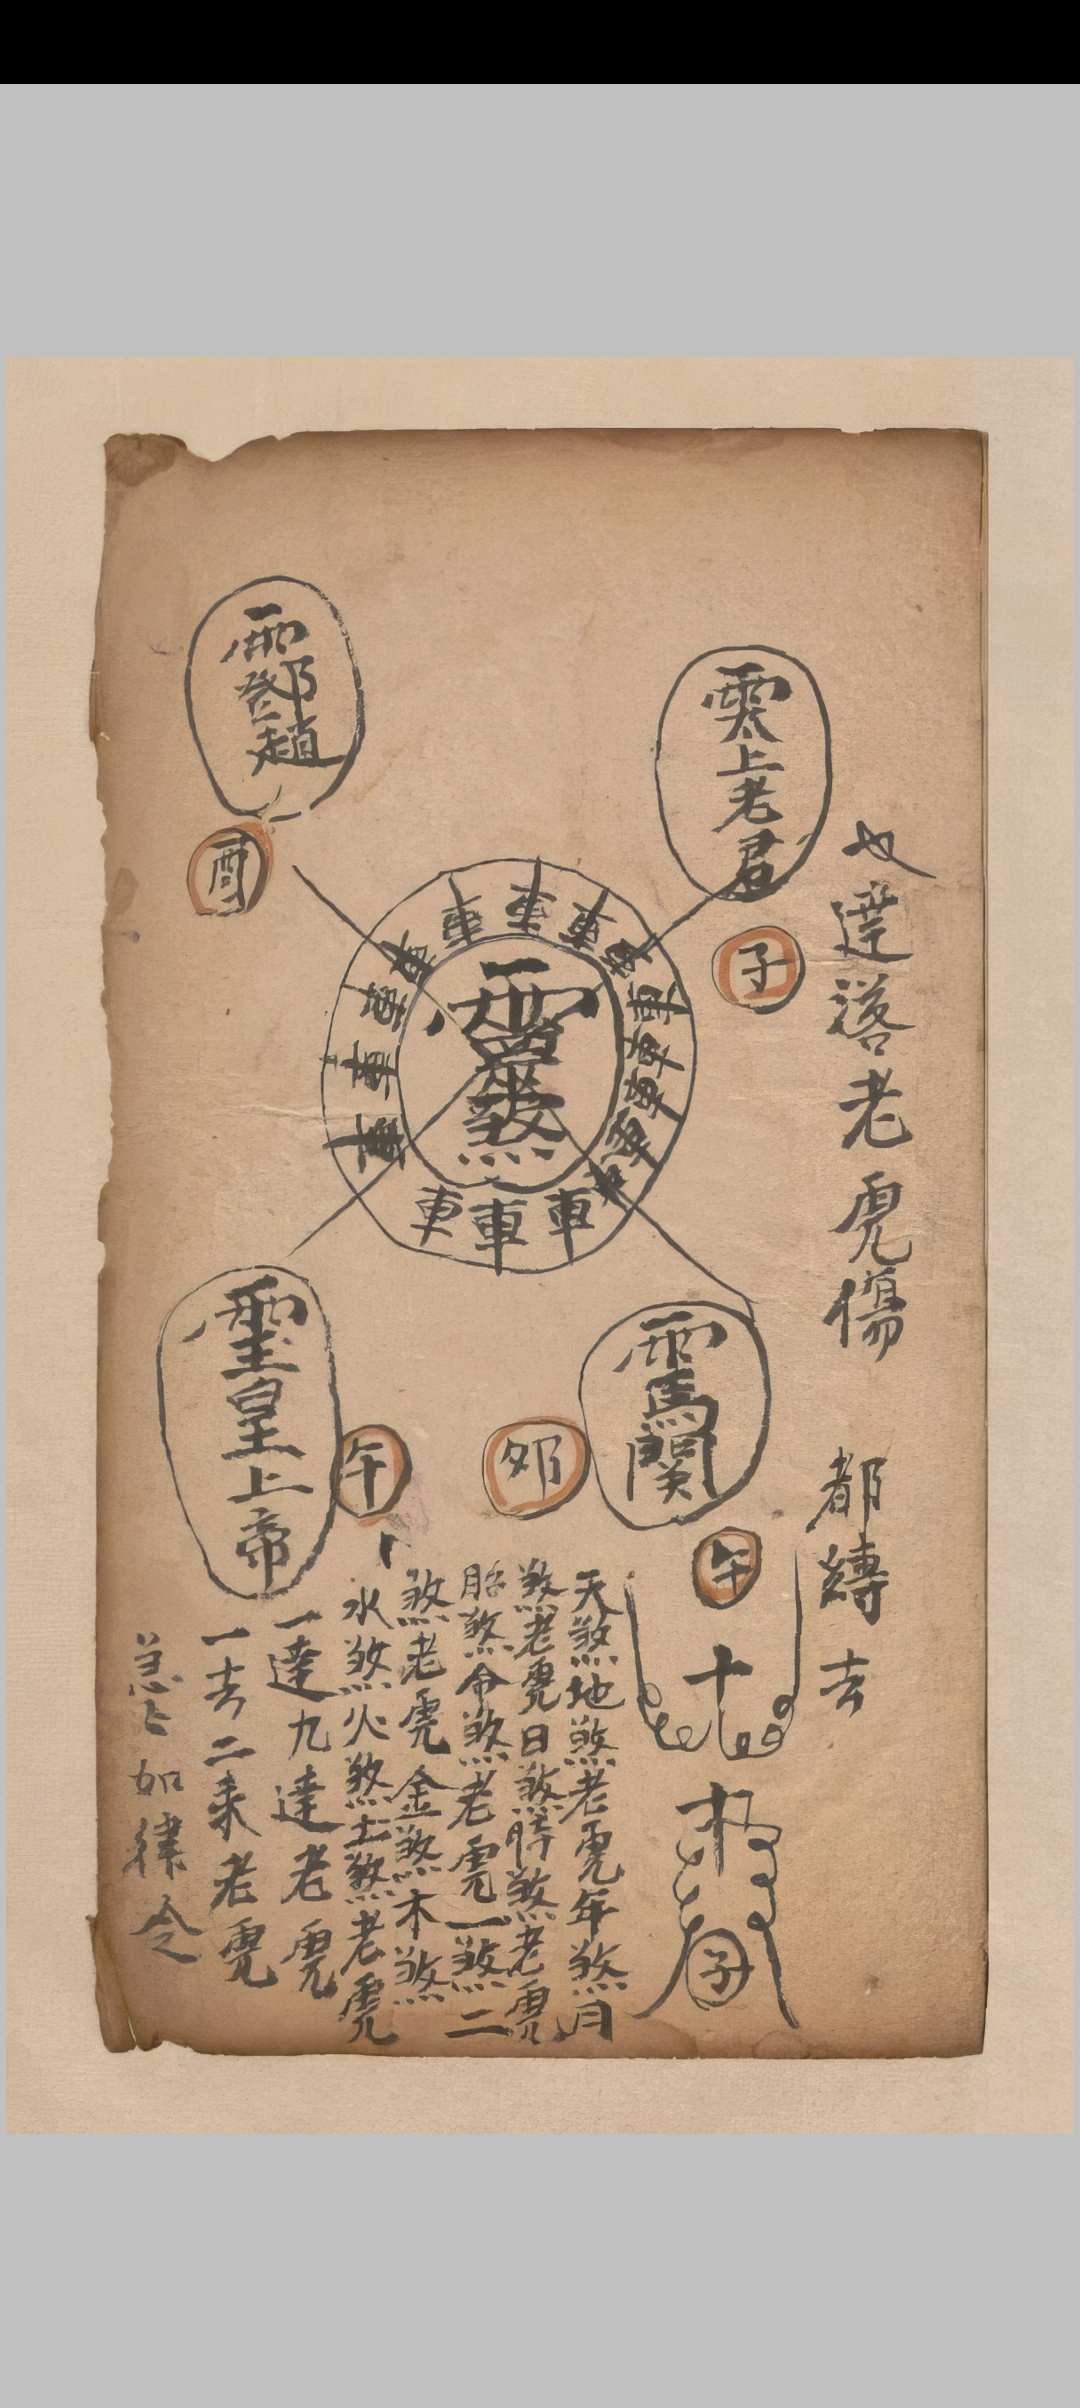 達落老虎傷
都縛去
太上老君
子
鄧趙
酉
煞
車車車車車車車車車車車車車車
玉皇上帝
午
馬関
卯
午
十
子
天煞地煞老虎年煞月
煞老虎日煞時煞老虎
胎煞命煞老虎一煞二
煞老虎金煞木煞
水煞火煞土煞老虎
一達九達老虎
一去二來老虎
急〻如律令